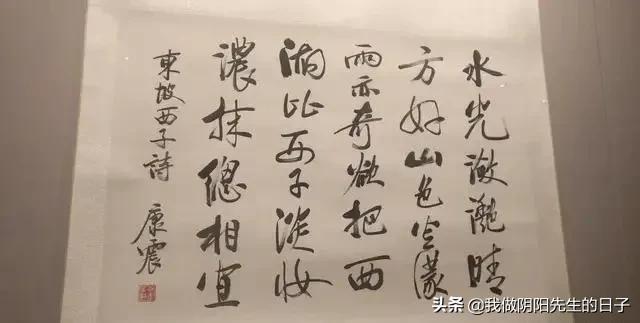 水光潋灩晴
方好山色空濛
雨亦奇欲把西
湖比西子淡妝
濃抹總相宜
東坡西子詩
康震
头条 @我做阴阳先生的日子